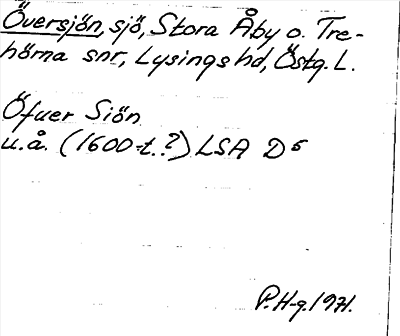 Översjön, sjö, Stora Åby o. Tre-
hörna snr, Lysings hd, Östg. L.
Öfuer Siön
u.å. (1600-t.?) LSA D⁵
P.H-g. 1971.